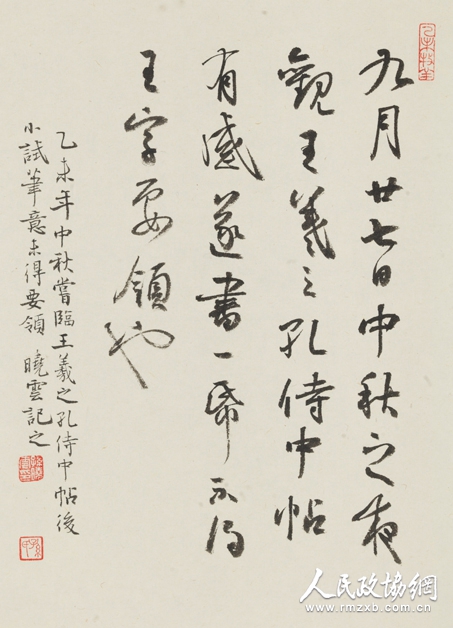 九月廿七日中秋之夜
觀王羲之孔侍中帖
有感遂書一帋不得
王字要領也
乙未年中秋嘗臨王羲之孔侍中帖後
小試筆意未得要領曉雲記之
人民政協網
www.rmzxb.com.cn